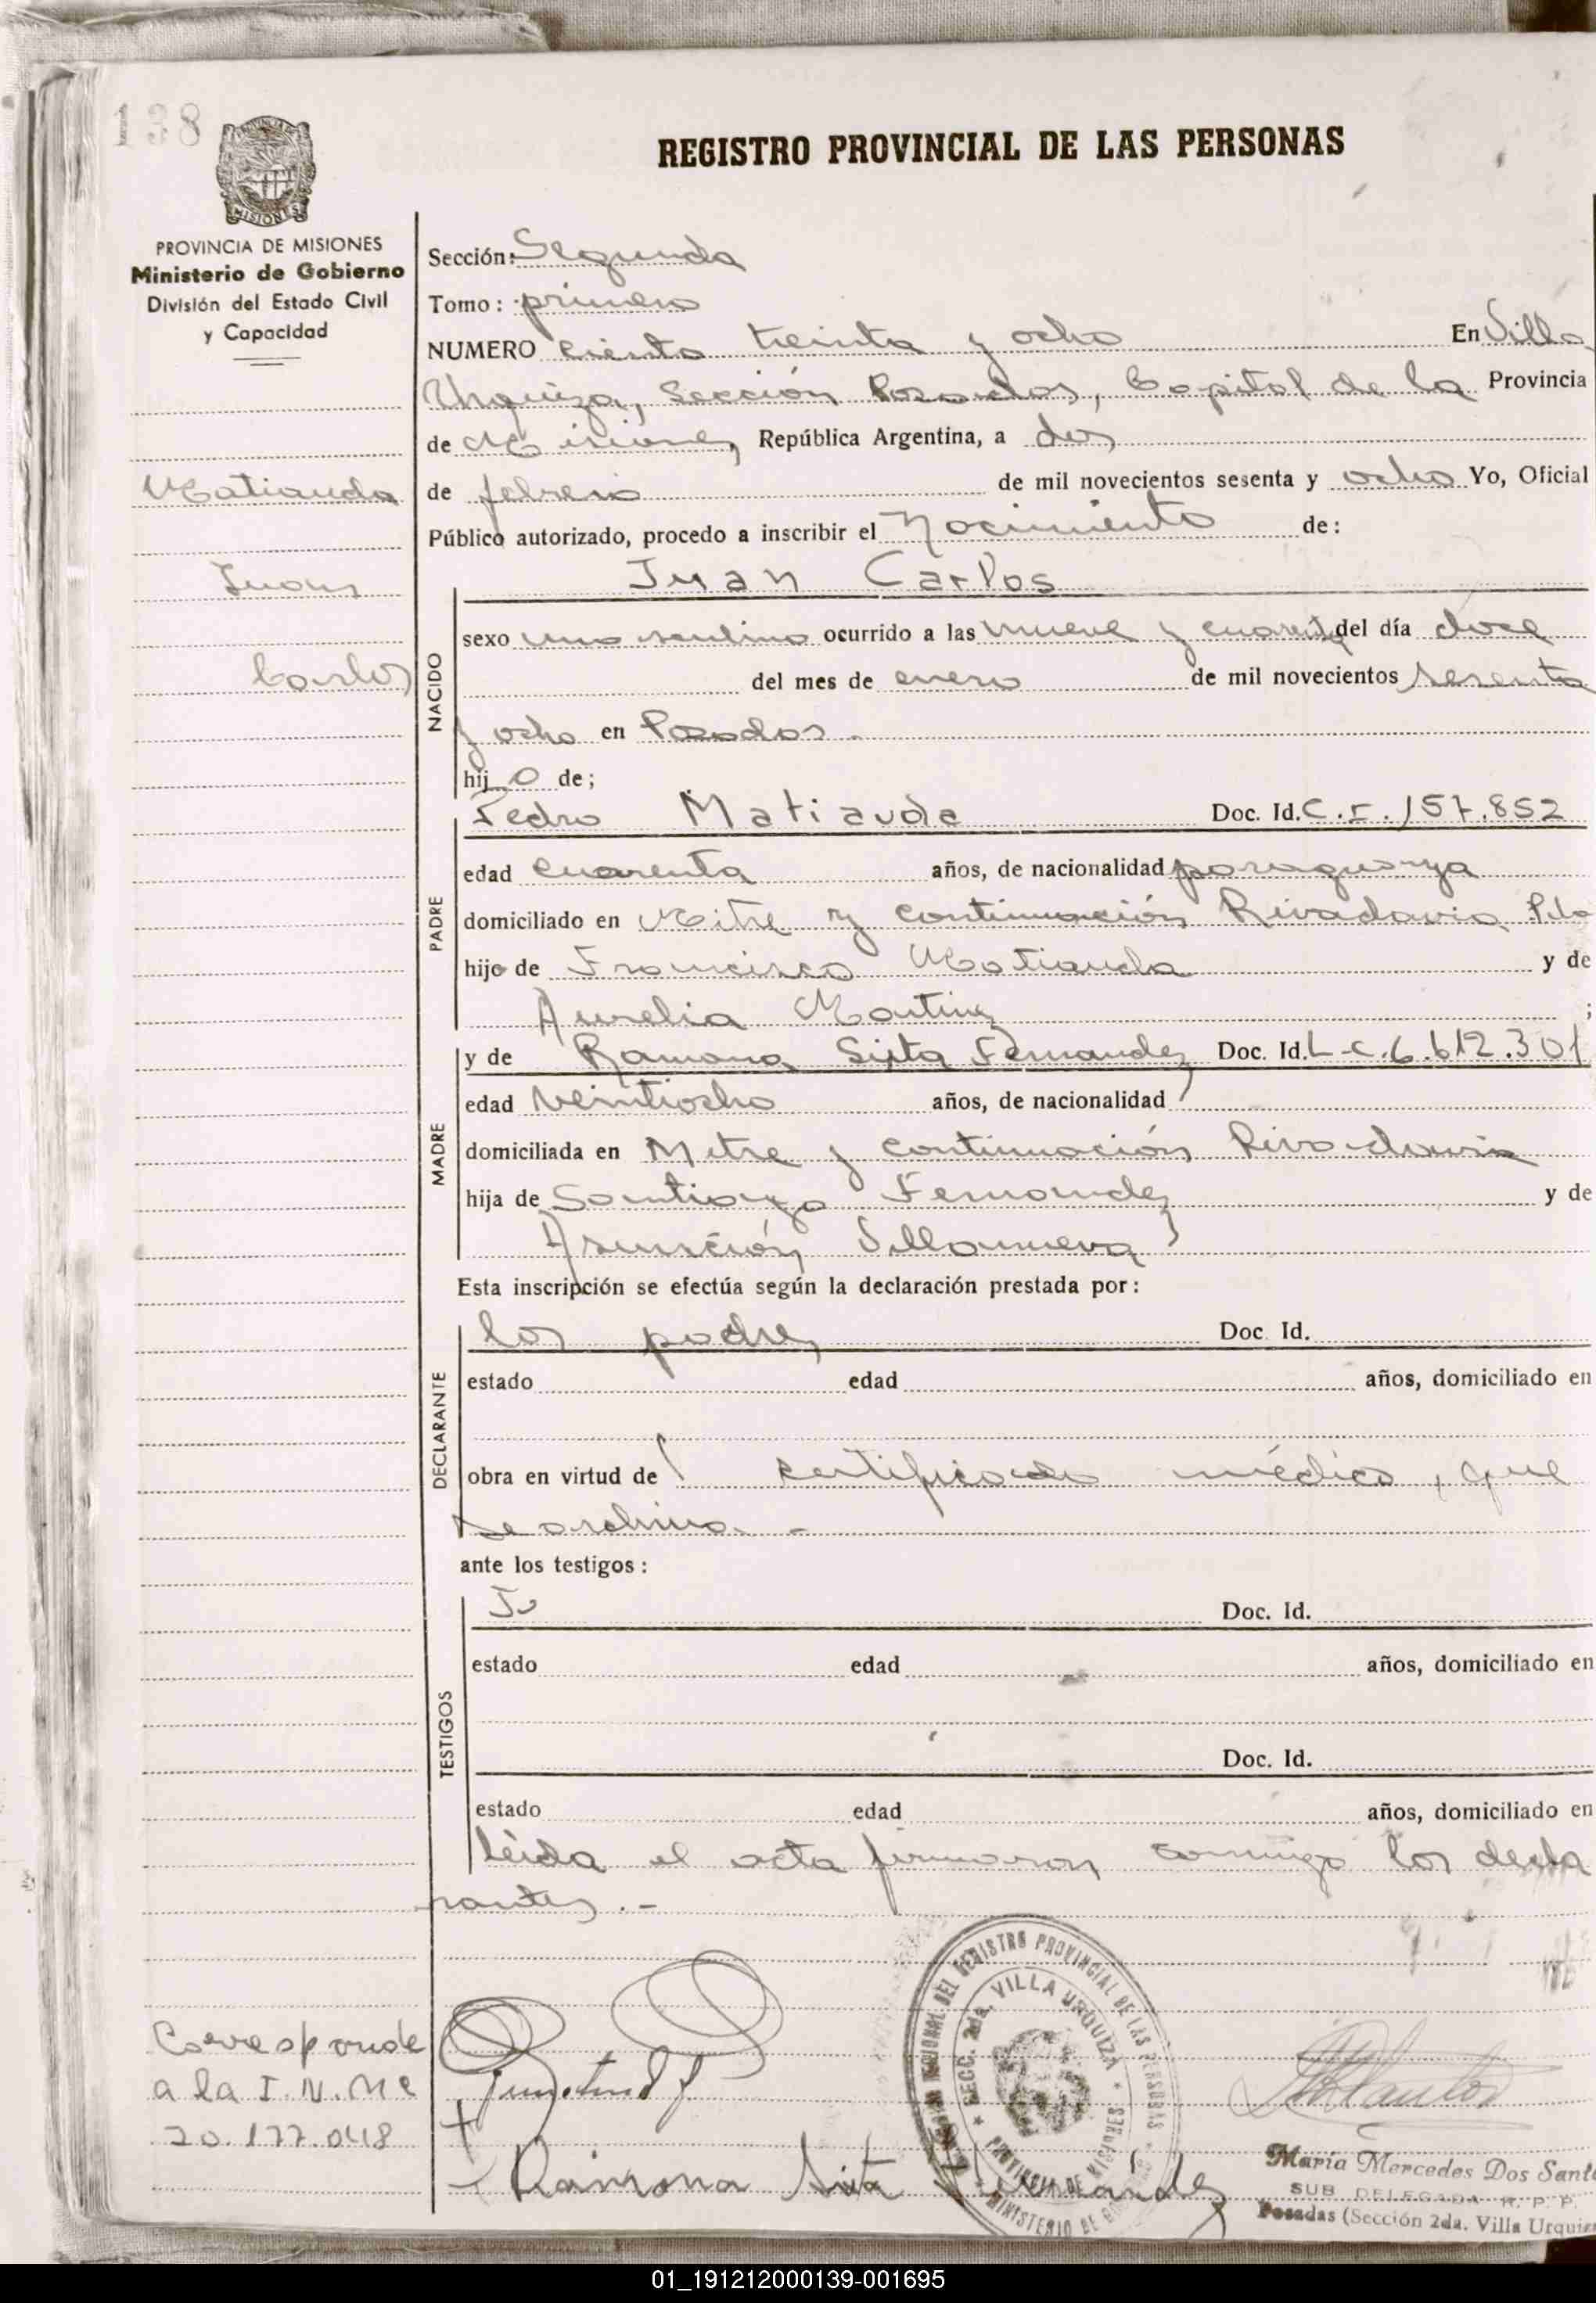 138
REGISTRO PROVINCIAL DE LAS PERSONAS
MISIONES
PROVINCIA DE MISIONES
Ministerio de Gobierno
División del Estado Civil
y Capacidad
Matiauda
Juan
Carlos
Sección: Segunda
Tomo: primero
NUMERO ciento treinta y ocho En Villa
Urquiza, Sección Posadas, Capital de la Provincia
de Misiones, República Argentina, a dos
de febrero de mil novecientos sesenta y ocho Yo, Oficial
Público autorizado, procedo a inscribir el Nacimiento de:
NACIDO
Juan Carlos
sexo masculino ocurrido a las nueve y cuarenta del día doce
del mes de enero de mil novecientos sesenta
y ocho en Posadas.
hijo de;
PADRE
Pedro Matiauda Doc. Id. C.I. 157.852
edad cuarenta años, de nacionalidad paraguaya
domiciliado en Mitre y continuación Rivadavia Pdas
hijo de Francisco Matiauda y de
Aurelia Martinez ;
MADRE
y de Ramona Sixta Fernandez Doc. Id. L.C. 6.612.301
edad veintiocho años, de nacionalidad
domiciliada en Mitre y continuación Rivadavia
hija de Santiago Fernandez y de
Asunción Villanueva
Esta inscripción se efectúa según la declaración prestada por:
DECLARANTE
los padres Doc. Id.
estado edad años, domiciliado en
obra en virtud de certificado médico, que
se archiva. -
ante los testigos:
TESTIGOS
Doc. Id.
estado edad años, domiciliado en
Doc. Id.
estado edad años, domiciliado en
Leída el acta firmaron conmigo los decla
rantes.-
Corresponde
a la I.N.Me
20.177.048
Ramona Sixta Fernández
REGIONAL DEL REGISTRO PROVINCIAL DE LAS PERSONAS
SECC. 2da. VILLA URQUIZA
PROVINCIA DE MISIONES
MINISTERIO DE
María Mercedes Dos Sant
SUB DELEGADA R. P. P.
Posadas (Sección 2da. Villa Urquiz
01_191212000139-001695